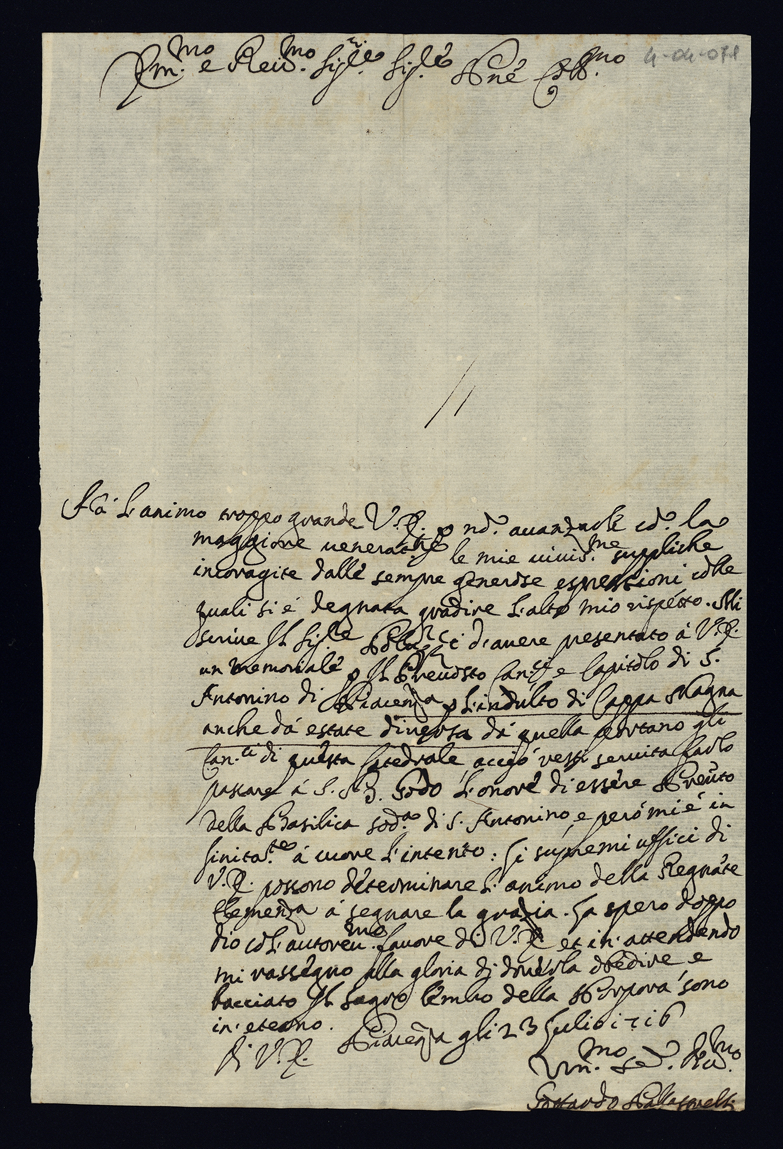 Em.mo e Reu.mo Sig.re Sig.re Pne Col.mo 4-04-071
Fà l'animo troppo grande V.E. p nō auanzarle cō la
maggiore uenerat.ne le mie uiuis.me suppliche
incoragite dalle sempre generose espressioni colle
quali si è degnata gradire l'alto mio rispetto. Mi
scriue Il Sig.re d'auere presentato à V.E.
un memoriale p Il Preuosto Can.ci e Capitolo di S.
Antonino di Piacenza p l'indulto di Cappa Magna
anche da estate diuersa da quella portano gli
Can.ci di questa Catedrale acciò resti seruita farlo
passare à S. S.tà Godo l'onore di essere Preuto
della Basilica sod.a di S. Antonino e però mi è in
finitam.te à cuore l'intento: Gi supremi uffici di
V.E. possono determinare l'animo della Regnāte
Clemenza à segnare la grazia. La spero doppo
dio col autoreu.mo fauore di V.E. et in attendendo
mi rassegno alla gloria di douerla obedire e
bacciato Il sagro lembo della Porpora sono
in eterno.
Di V.E. Piacenza gli 23 Iulio 1716
Um.mo Se.r Reu.mo
Gottardo Pallastrelli